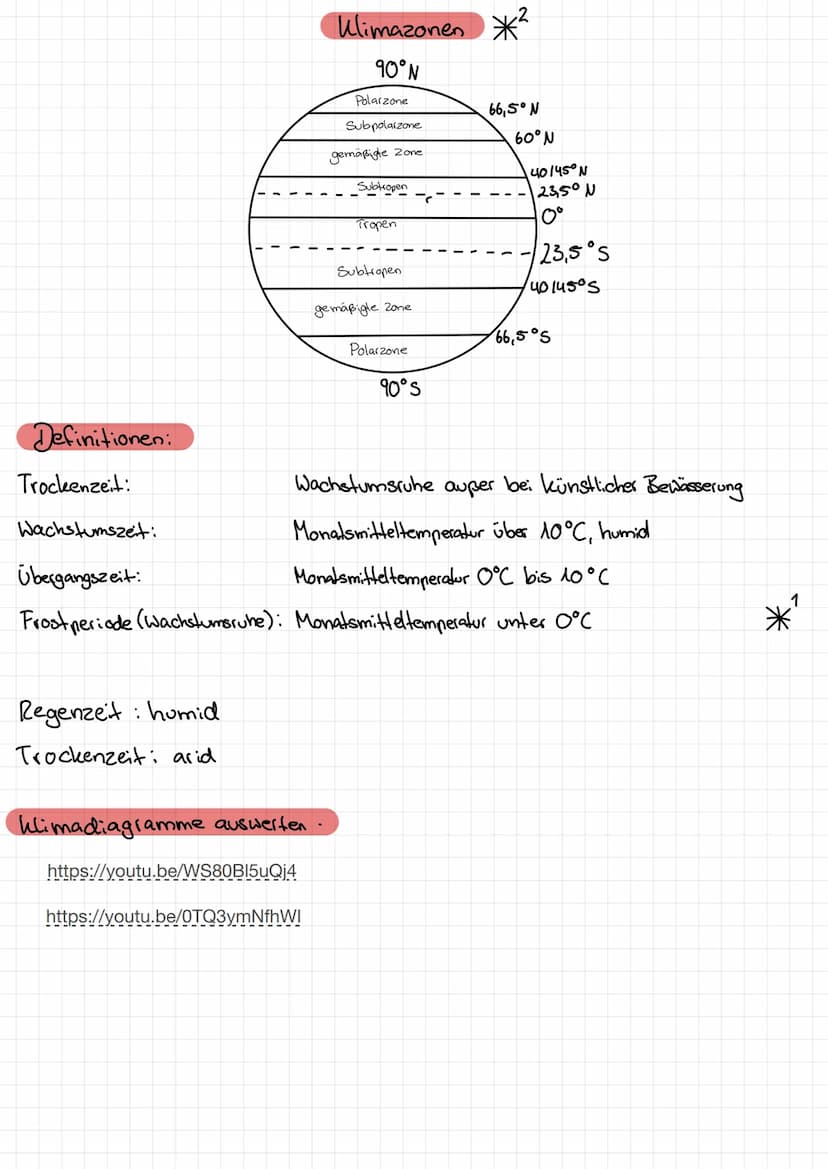 Klimazonen *2
90°N
Polarzone
66,5°N
Subpolarzone
60°N
gemäßigte Zone
40/45°N
Subtropen
23,5°N
0°
Tropen
23,5°S
Subtropen
40/45°S
gemäßigte Zone
66,5°S
Polarzone
90°S
Definitionen:
Trockenzeit: Wachstumsruhe außer bei künstlicher Bewässerung
Wachstumszeit: Monatsmitteltemperatur über 10°C, humid
Übergangszeit: Monatsmitteltemperatur 0°C bis 10°C
Frostperiode (Wachstumsruhe): Monatsmitteltemperatur unter 0°C *1
Regenzeit: humid
Trockenzeit: arid
Klimadiagramme auswerten.
https://youtu.be/WS80BI5uQj4
https://youtu.be/0TQ3ymNfhWI